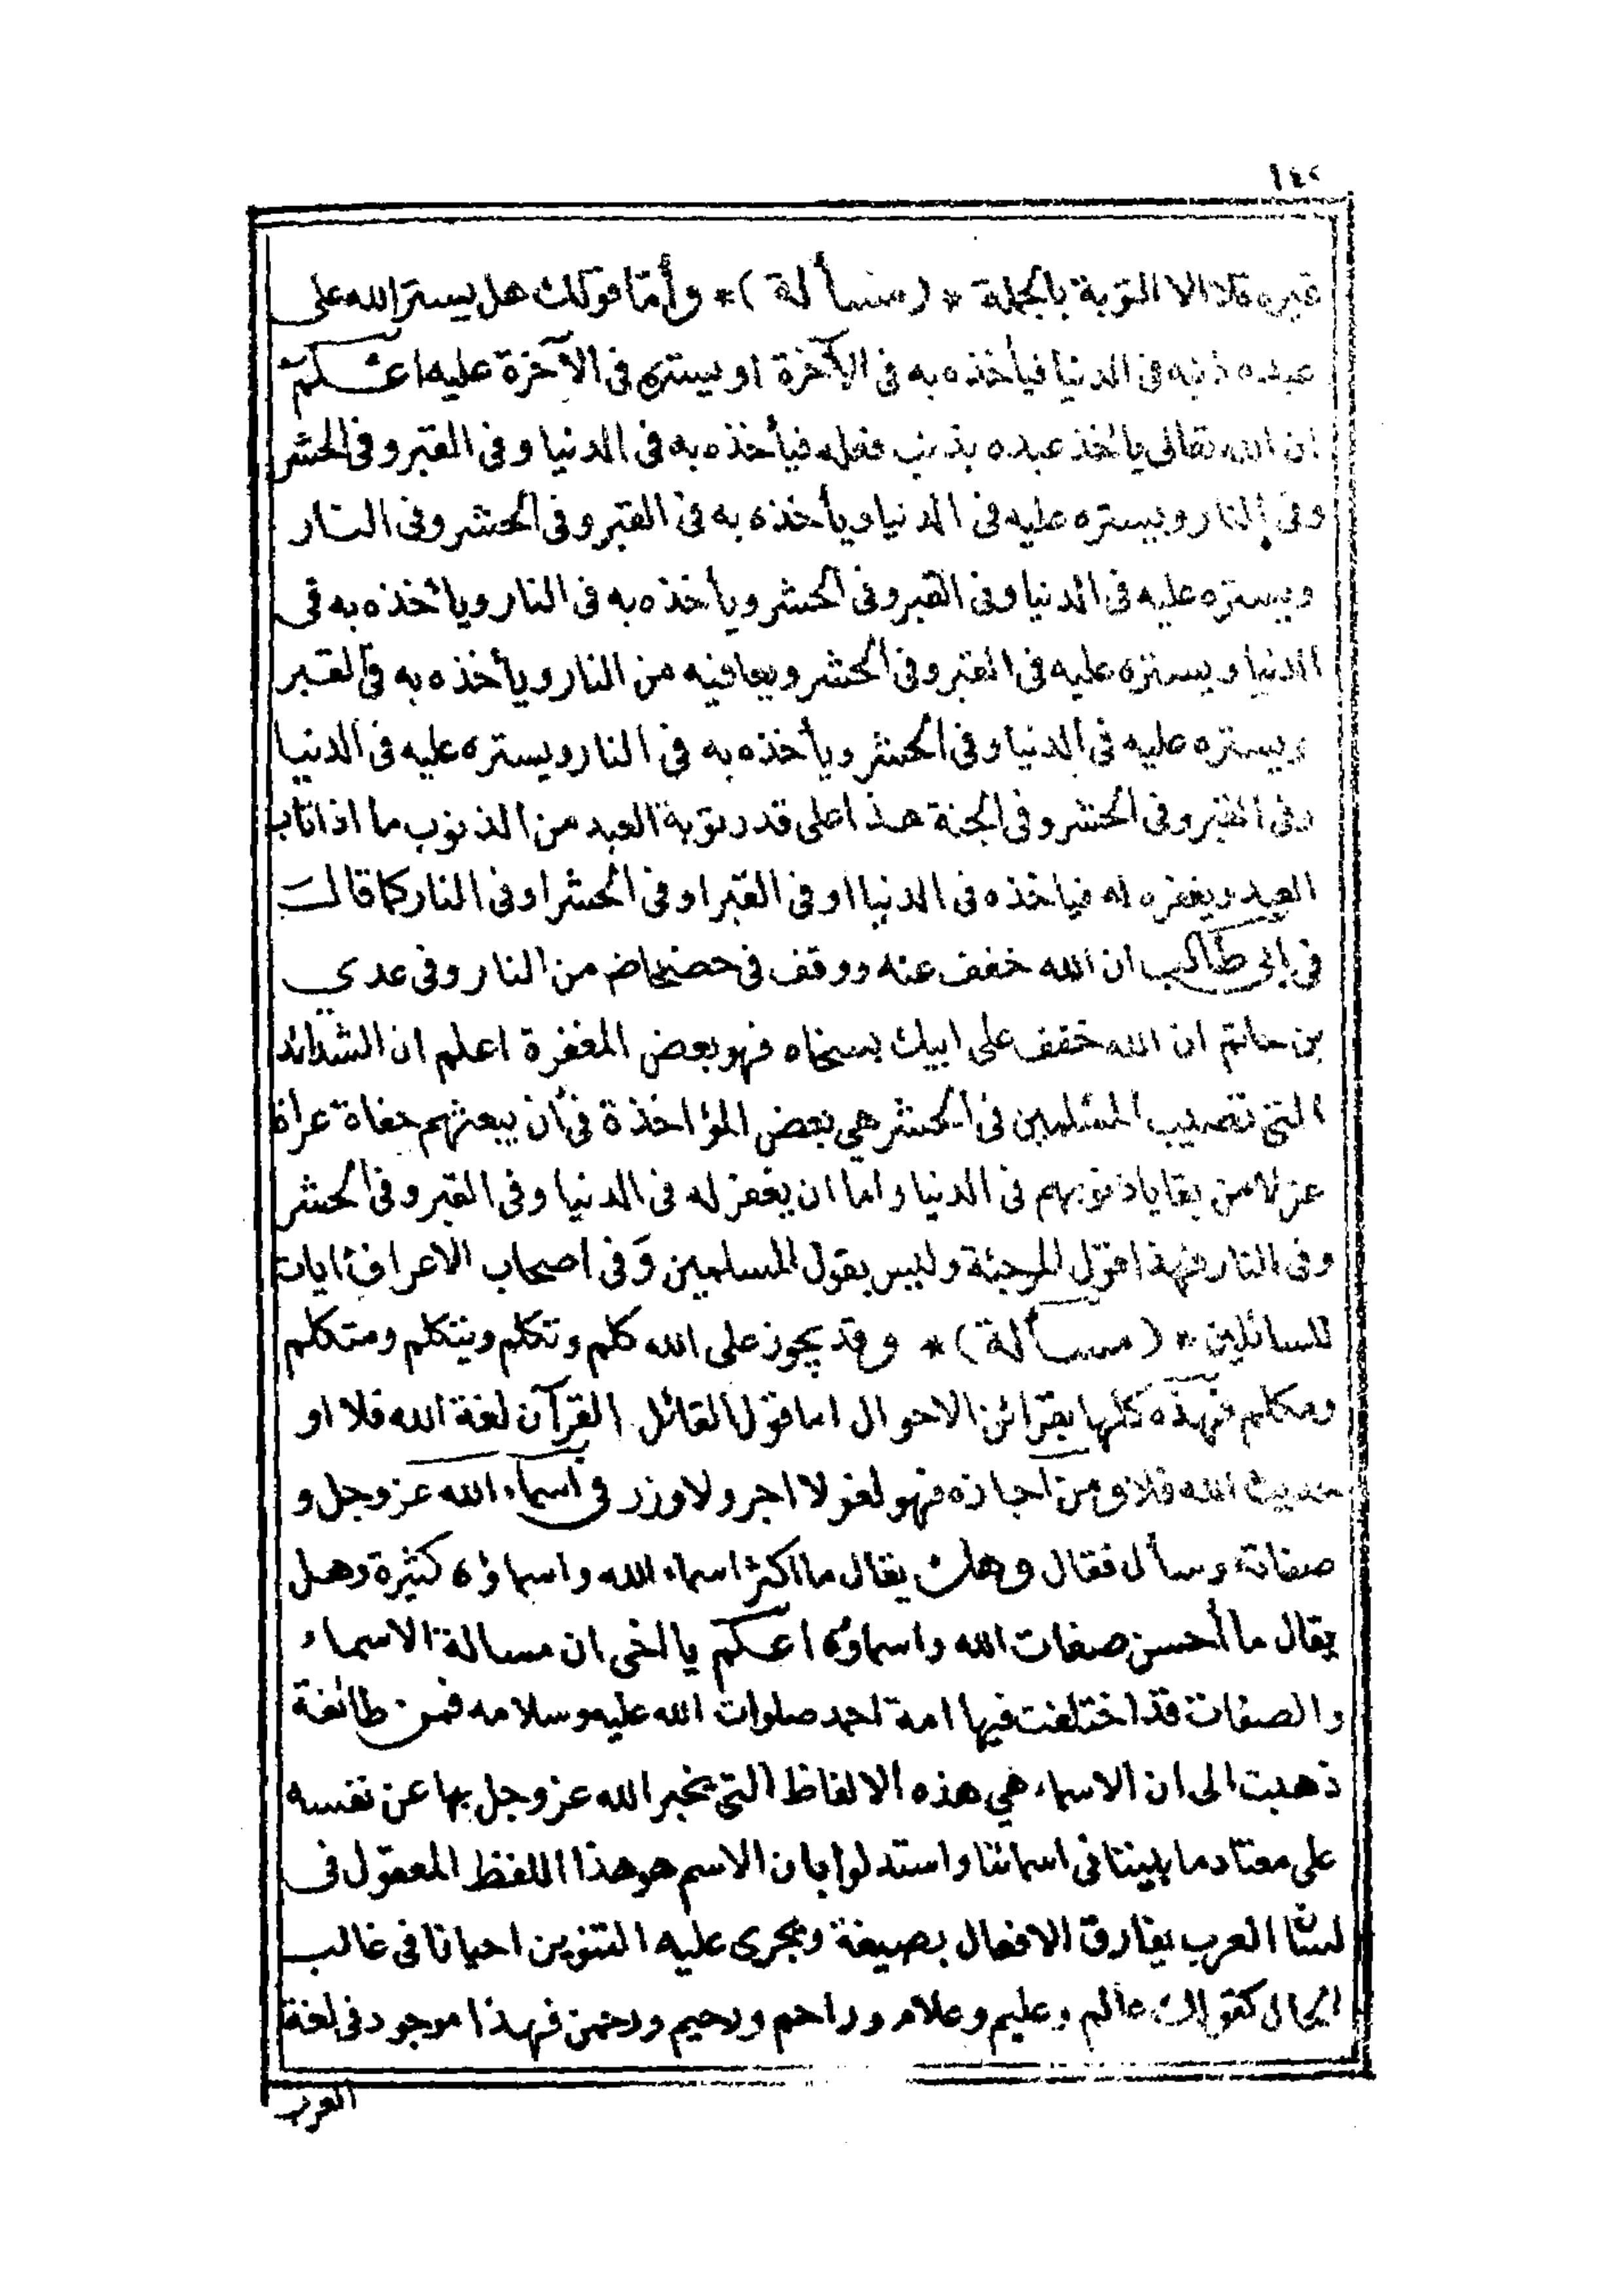 ١٤٢
غيره فلا الا التوبة بالجملة * (مسألة) * وأما قولك هل يستر الله على
عبده ذنبه فى الدنيا فيأخذه به فى الآخرة او يستره فى الآخرة عليه اعلم
ان الله تعالى يأخذ عبده بذنب فعله فيأخذه به فى الدنيا وفى القبر وفى الحشر
وفى النار ويستره عليه فى الدنيا ويأخذه به فى القبر وفى الحشر وفى النار
ويستره عليه فى الدنيا وفى القبر وفى الحشر ويأخذه به فى النار ويأخذه به فى
الدنيا ويستره عليه فى القبر وفى الحشر ويعافيه من النار ويأخذه به فى القبر
ويستره عليه فى الدنيا وفى الحشر ويأخذه به فى النار ويستره عليه فى الدنيا
وفى القبر وفى الحشر وفى الجنة هذا على قدر توبة العبد من الذنوب ما اذا تاب
العبد ويغفره له فياخذه فى الدنيا او فى القبر او فى الحشر او فى النار كما قالت
فى ابى طالب ان الله خفف عنه ووقف فى حضحاض من النار وفى عدي
بن حاتم ان الله خفف على ابيك بسخاه فهو بعض المغفرة اعلم ان الشدائد
التى تصيب المسلمين فى الحشر هي بعض المؤاخذة فى أن يبعثهم حفاة عراة
عزلا من بقايا ذنوبهم فى الدنيا واما ان يغفر له فى الدنيا وفى القبر وفى الحشر
وفى النار فهذا قول المرجئة وليس بقول المسلمين وفى اصحاب الاعراف ايات
للسائلين * (مسألة) * وقد يجوز على الله كلم وتكلم ويتكلم ومتكلم
ومكلم فهذه كلها بقرائن الاحوال اما قول القائل القرآن لغة الله فلا او
حديث الله فلا ومن اجازه فهو لغو لا اجر ولا وزر فى اسماء الله عز وجل و
صفاته وسأل فقال وهل يقال ما اكثر اسماء الله واسماؤه كثيرة وهل
يقال ما أحسن صفات الله واسماؤه اعلم يا اخى ان مسالة الاسماء
والصفات قد اختلفت فيها امة احمد صلوات الله عليه وسلامه فمن طائفة
ذهبت الى ان الاسماء هي هذه الالفاظ التى يخبر الله عز وجل بها عن نفسه
على معتاد ما بيننا فى اسمائنا واستدلوا بان الاسم هو هذا اللفظ المعقول فى
لسان العرب يفارق الافعال بصيغة ويجرى عليه التنوين احيانا فى غالب
الحال كقولك عالم وعليم وعلام وراحم ورحيم ورحمن فهذا موجود فى لغة
العرب